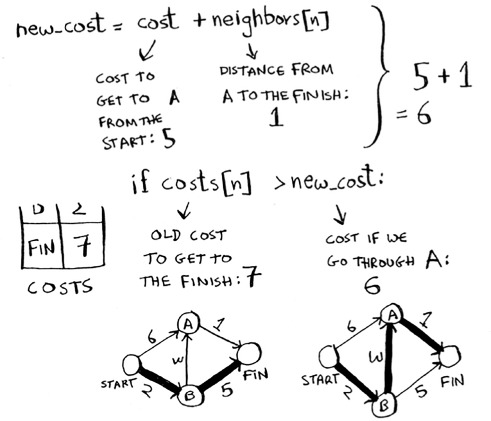 new_cost = cost + neighbors[n]
COST TO
GET TO A
FROM THE
START: 5
DISTANCE FROM
A TO THE FINISH:
1
5 + 1
= 6
if costs[n] > new_cost:
2
FIN 7
COSTS
OLD COST
TO GET TO
THE FINISH: 7
COST IF WE
GO THROUGH A:
6
A
6
1
3
START
2
B
5
FIN
A
6
1
3
START
2
B
5
FIN